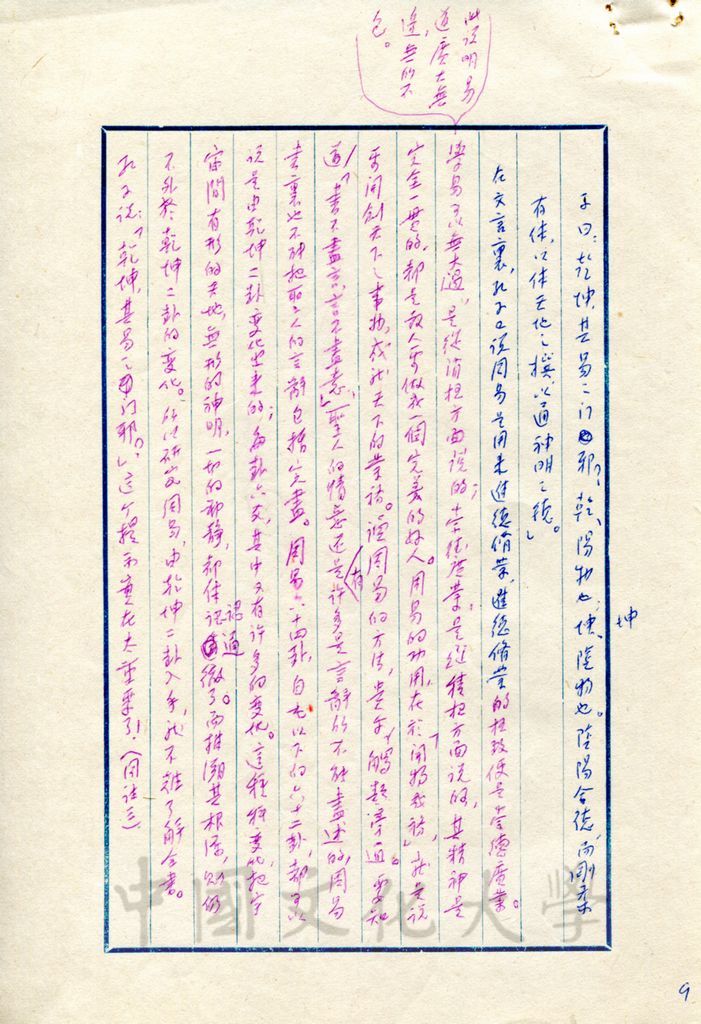 子曰:乾坤,其易之門邪?乾、陽物也;坤、陰物也。陰陽合德,而剛柔
有体,以体天地之撰,以通神明之德。」
坤
在文言裏,孔子又說周易是用來進德修業,進德修業的極致便是崇德廣業。
學易可以無大過,是從消極方面說的;崇德廣業,是從積極方面說的,其精神是
此說明易
道廣大無
邊無所不
包。
完全一貫的,都是教人要做成一個完美的好人。周易的功用,在於「開物成務」,就是說
要開創天下之事物,成就天下的業務。讀周易的方法,貴乎觸類旁通。要知
道「書不盡言,言不盡意」,聖人的情意還有許多是言辭所不能盡述的,周易
書裏也不能把聖人的言辭包括完盡。周易六十四卦,自屯以下的六十二卦,都可以
說是由乾坤二卦變化出來的;每卦六爻,其中又有許多的變化。這種種變化,把宇
宙間有形的天地,無形的神明,一切的動靜,都体認通微了。而推溯其根源,則仍
不外於乾坤二卦的變化。所以研究周易,由乾坤二卦入手,就不難了解全書。
孔子說:「乾坤,其易之門邪。」這個提示實在太重要了!(同註三)
9
中國文化大學